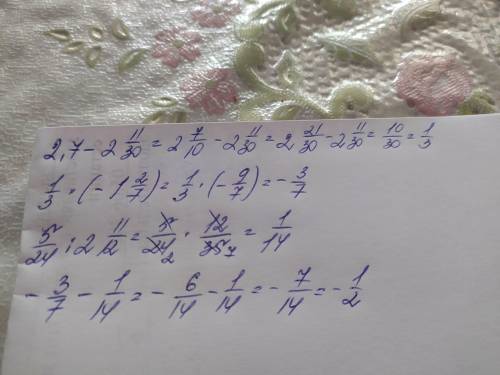 2,7 - 2 11/30 = 2 7/10 - 2 11/30 = 2 21/30 - 2 11/30 = 10/30 = 1/3
1/3 · (- 1 2/7) = 1/3 · (- 9/7) = - 3/7
5/24 : 2 11/12 = 5/24 2 · 12/35 7 = 1/14
- 3/7 - 1/14 = - 6/14 - 1/14 = - 7/14 = - 1/2